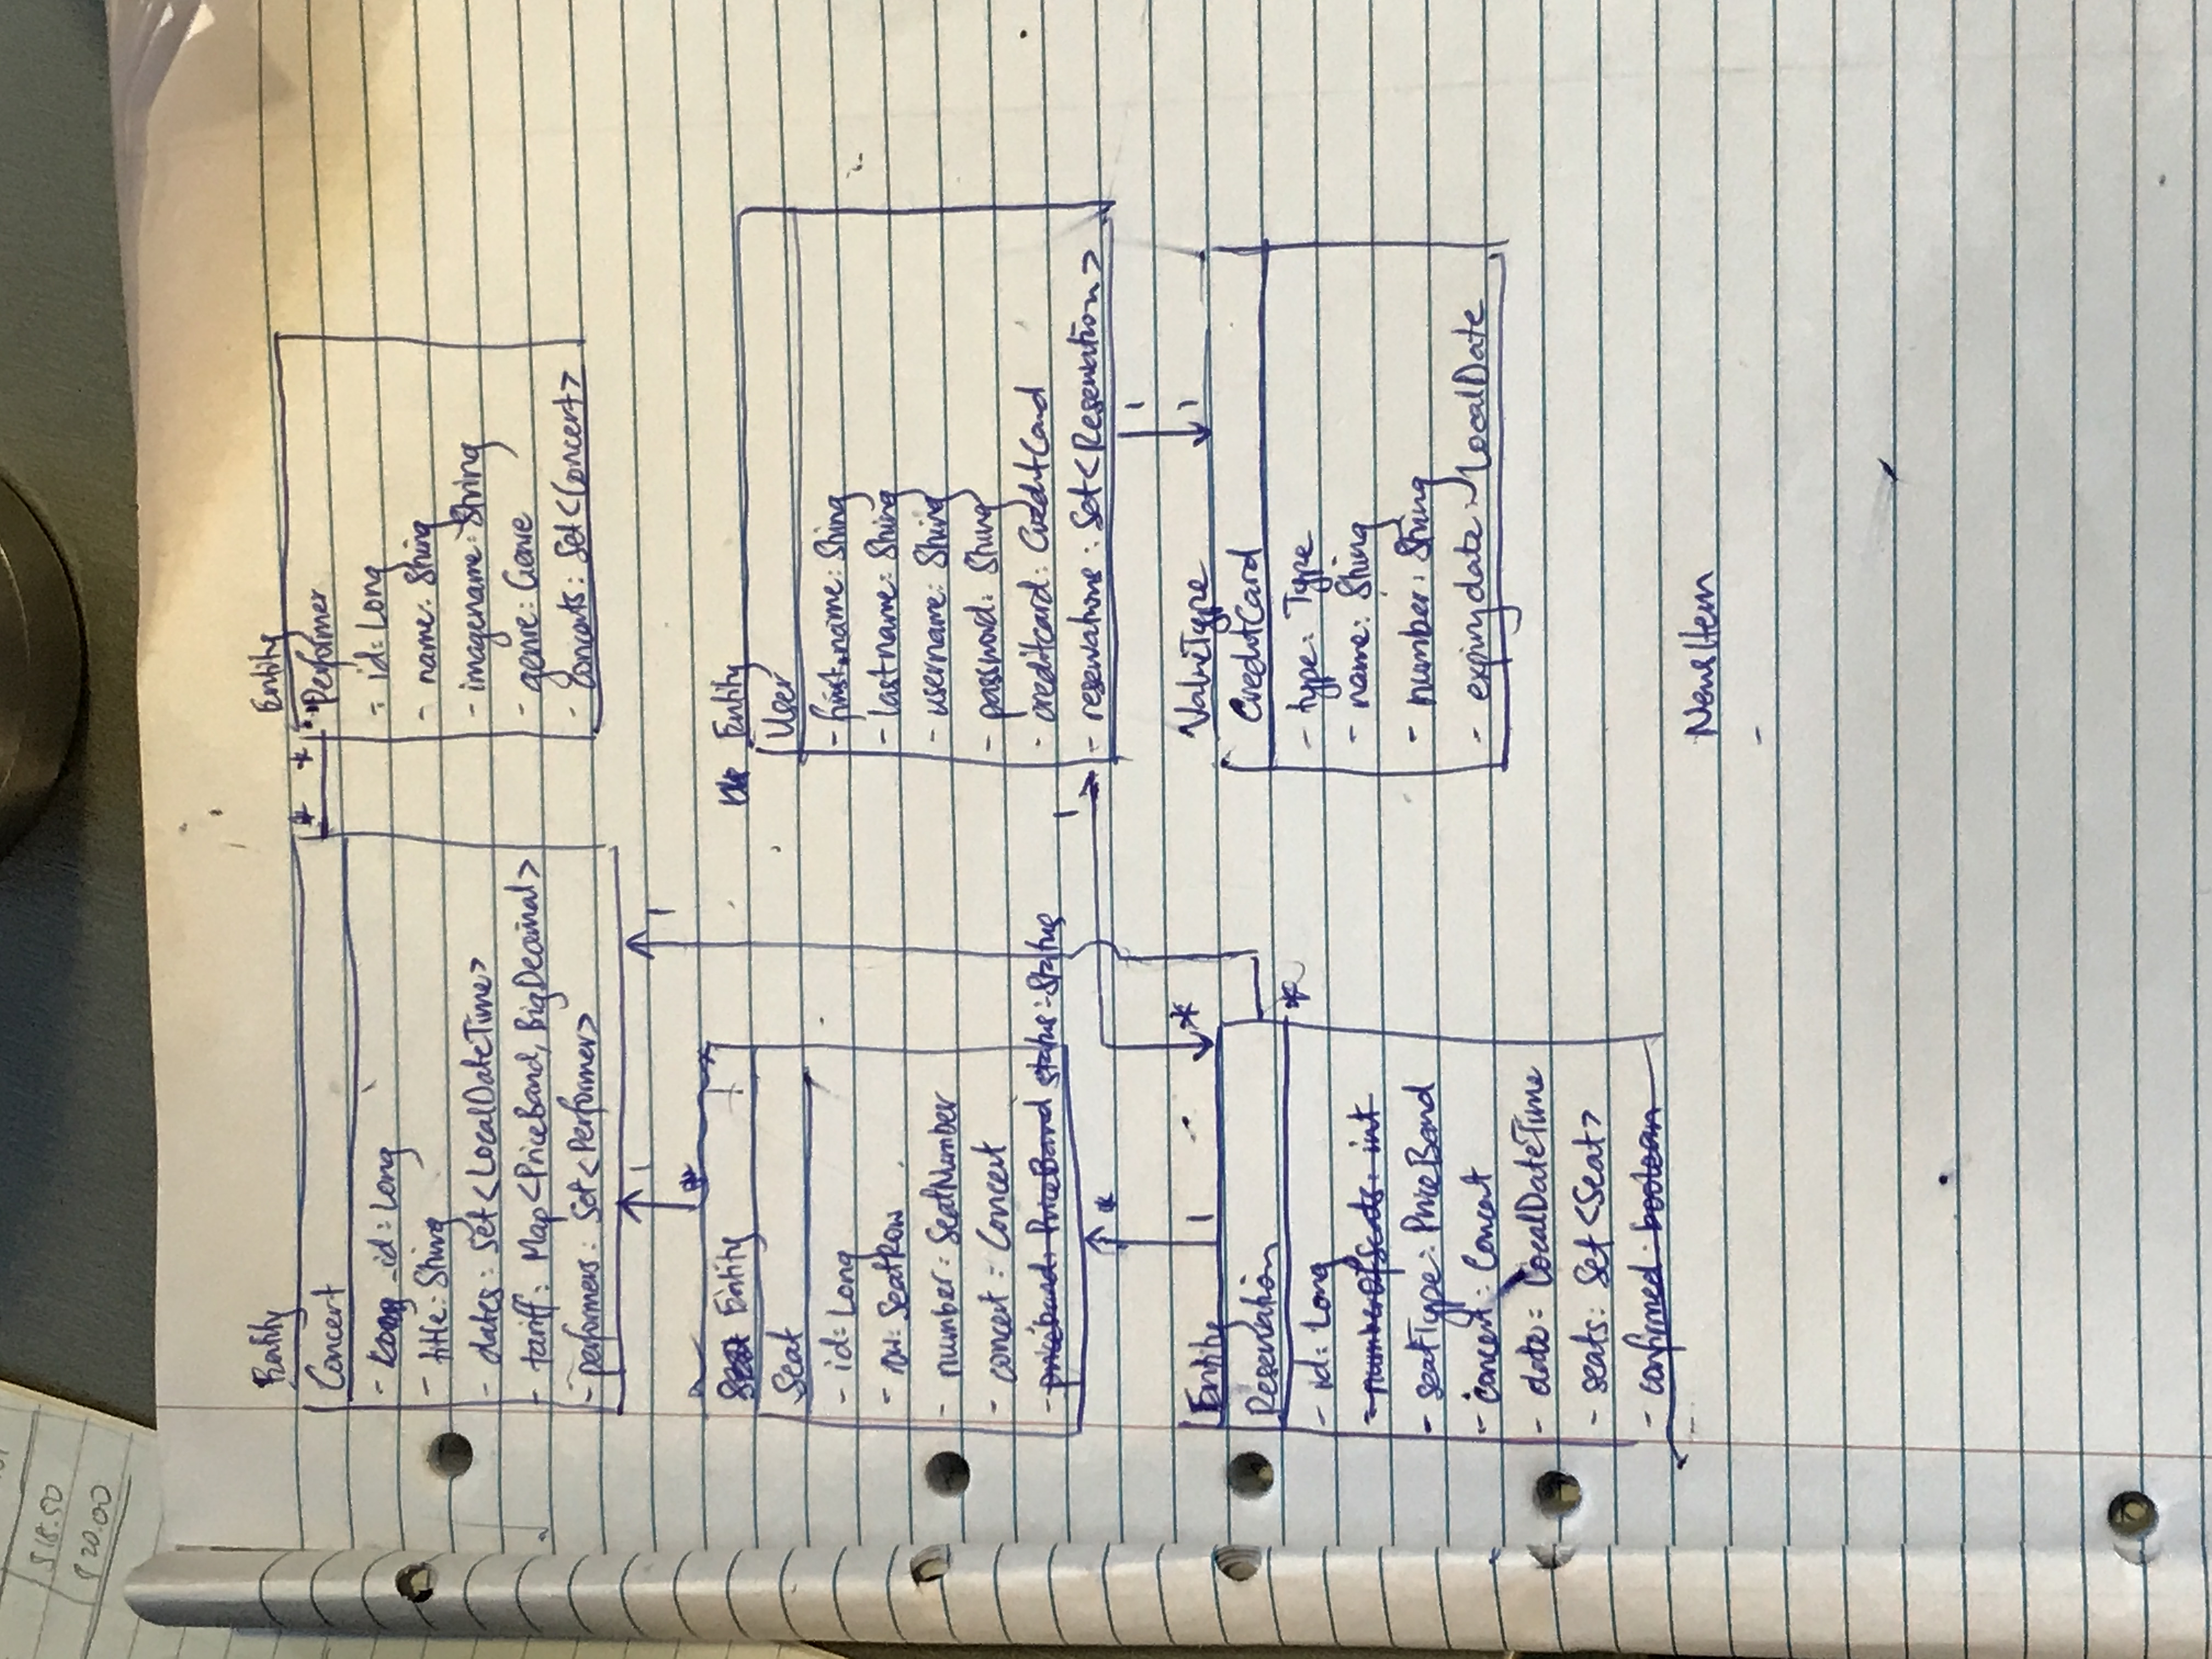 $18.50
$20.00
Entity
Concert
- id: Long
- title: String
- dates: Set<LocalDateTime>
- tariff: Map<PriceBand, BigDecimal>
- performers: Set<Performer>
* *
Entity
Performer
- id: Long
- name: String
- imagename: String
- genre: Genre
- concerts: Set<Concert>
1
*
1
Entity
Seat
- id: Long
- row: SeatRow
- number: SeatNumber
- concert: Concert
- priceband: PriceBand status: Status
Entity
User
- firstname: String
- lastname: String
- username: String
- password: String
- creditcard: CreditCard
- reservations: Set<Reservation>
1
*
1
*
1
1
Entity
Reservation
*
- id: Long
- numberOfSeats: int
- seatType: PriceBand
- concert: Concert
- date: LocalDateTime
- seats: Set<Seat>
- confirmed: boolean
-
ValueType
CreditCard
- type: Type
- name: String
- number: String
- expirydate: LocalDate
NewsItem
-